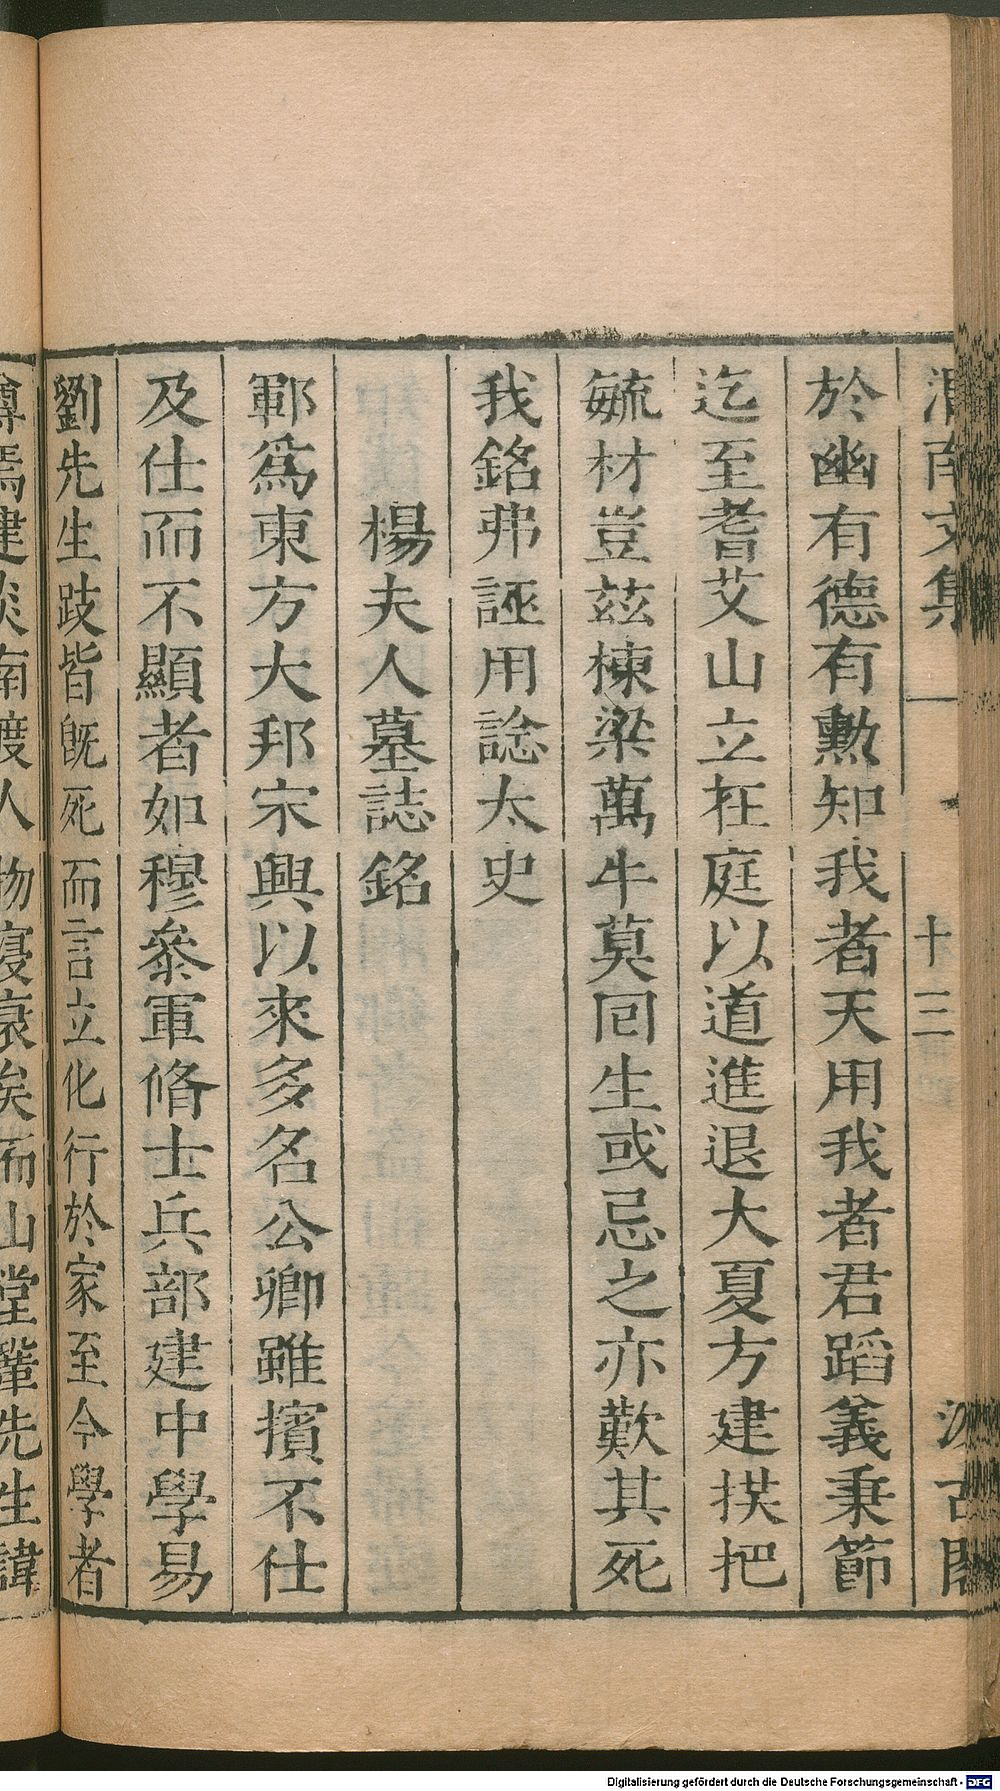 於幽有德有勲知我者天用我者君蹈義秉節
迄至耆艾山立在庭以道進退大夏方建掞把
毓材豈兹棟梁萬牛莫囘生或忌之亦歎其死
我銘弗誣用諗太史
楊夫人墓誌銘
鄆爲東方大邦宋興以來多名公卿雖擯不仕
及仕而不顯者如穆叅軍脩士兵部建中學易
劉先生跂皆旣死而言立化行於家至今學者
尊焉建炎南渡人物寖衰矣而山堂鞏先生諱
渭南文集
十三
汲古閣
Digitalisierung gefördert durch die Deutsche Forschungsgemeinschaft - DFG